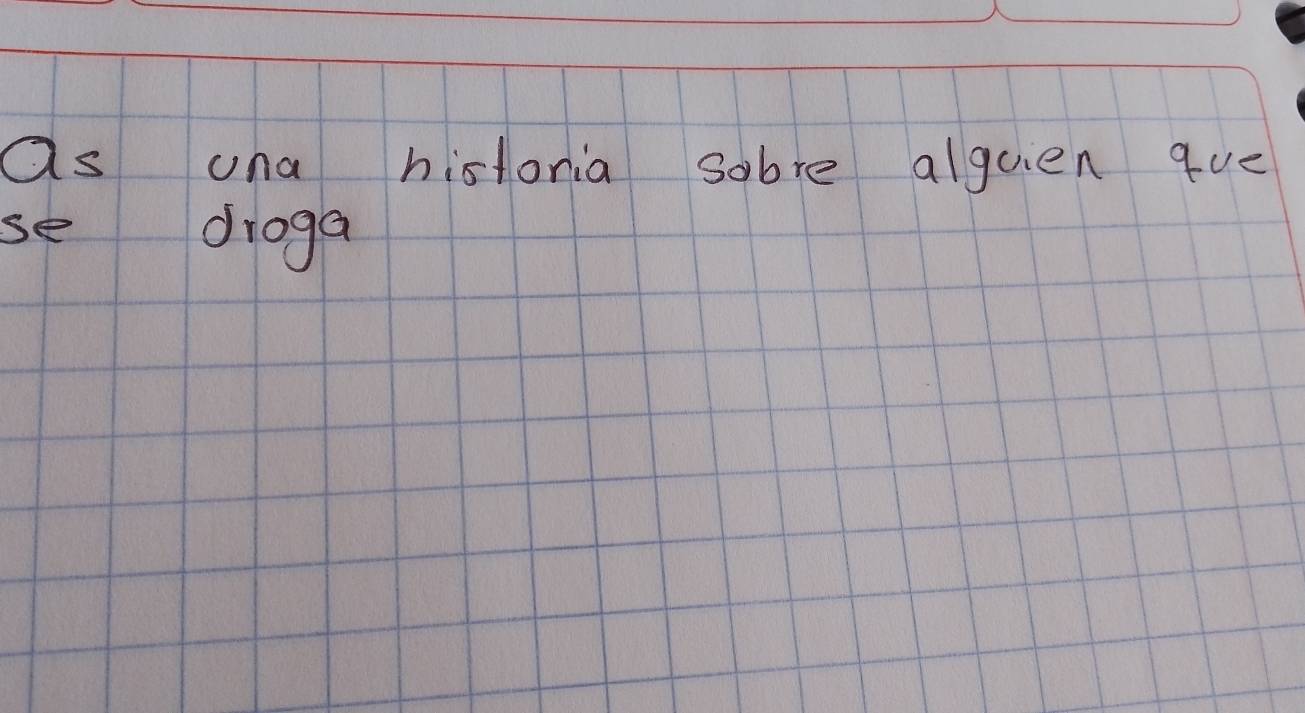 as una historia sobre alguien que
se droga